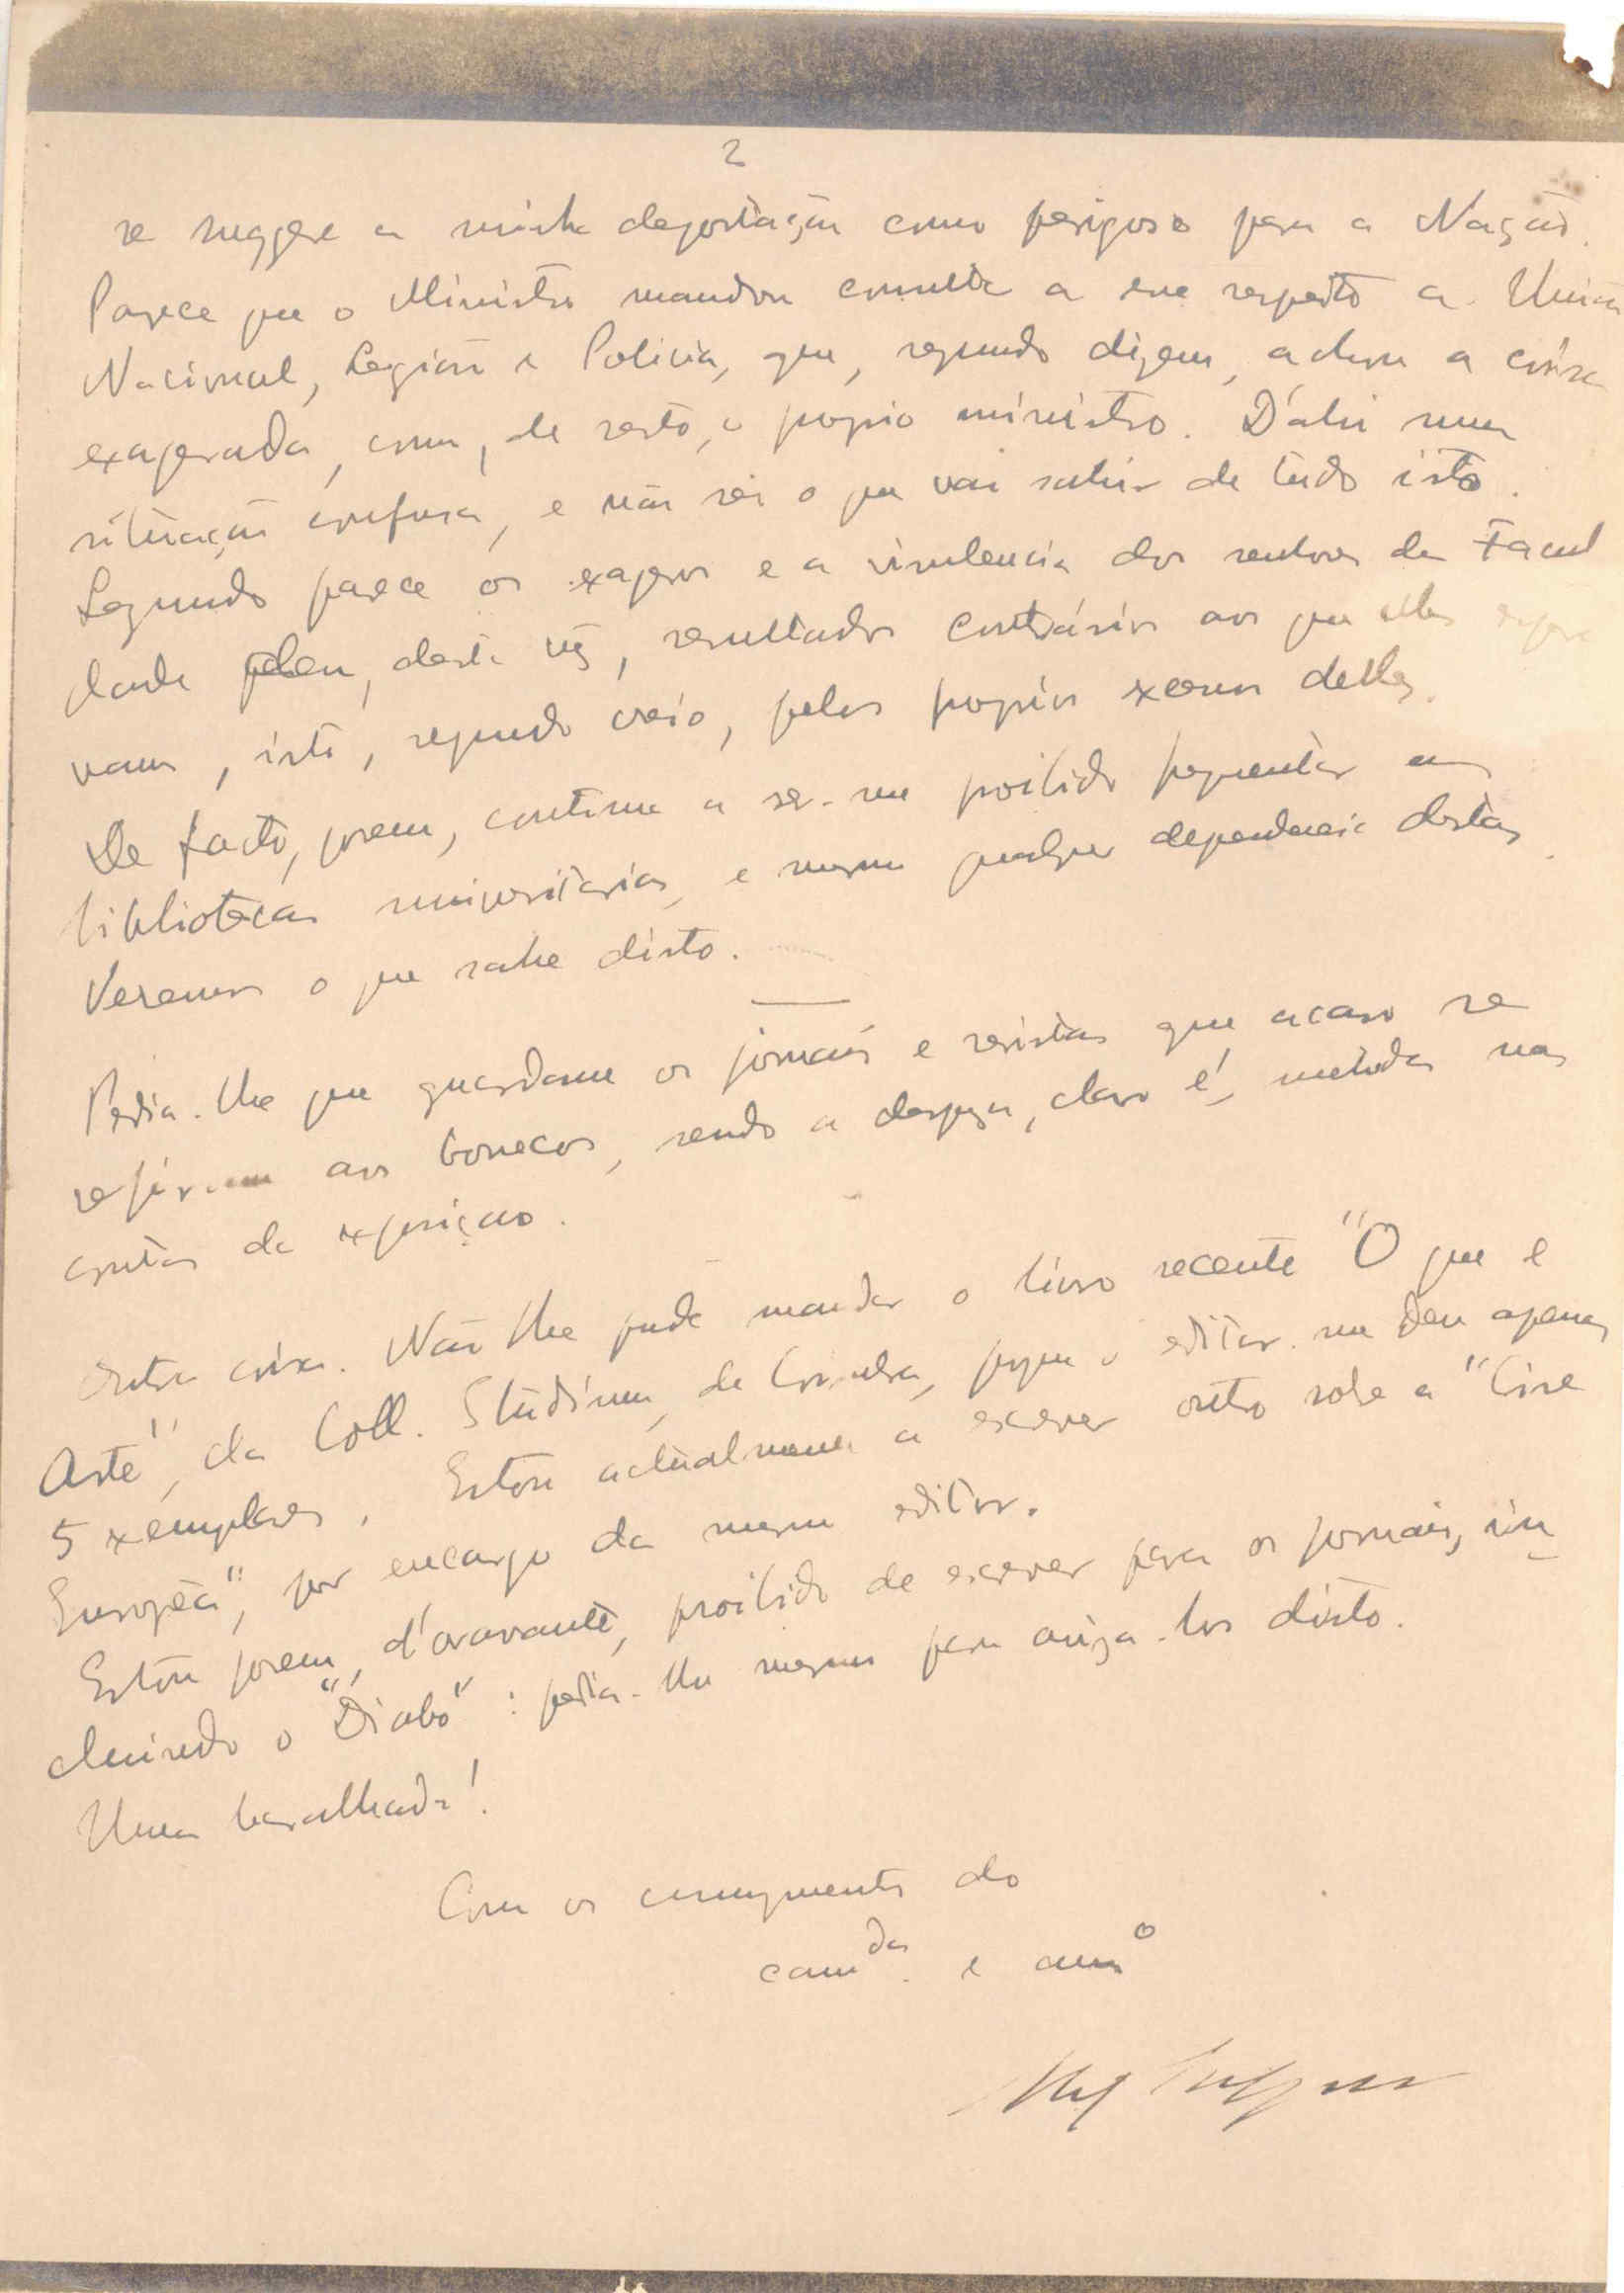 2
se suggere a minha deportação como perigoso para a Nação.
Parece que o Ministro mandou consulta a esse respeito a União
Nacional, Legião e Policia, que, segundo dizem, acham a coisa
exagerada, como, de resto, o proprio ministro. D'ahi uma
situação confusa, e não sei o que vai sahir de tudo isto.
Segundo parece os exageros e a virulencia dos senhores da Facul
dade, desta vêz, resultados contrários aos que elles espera
vam, isto, segundo creio, pelos proprios excessos delles.
De facto, porem, continua a ser-me proibido frequentar as
bibliotecas universitarias, e mesmo qualquer dependencia destas.
Veremos o que sahe disto.
Pedia-lhe que guardasse os jornais e revistas que acaso se
refiram aos bonecos, sendo a despeza, claro é, metida nas
contas da exposição.
Outra coisa. Não lhe pude mandar o livro recente "O que é
Arte", da Coll. Stúdium, de Coimbra, porque o editor me deu apenas
5 exemplares. Estou actualmente a escrever outro sobre a "Arte
Européa", por encargo do mesmo editor.
Estou porem, d'oravante, proibido de escrever para os jornais, in
cluindo o "Diabo": pedia-lhe mesmo para avisa-los disto.
Uma baralhada!
Com os cumprimentos do
camda. e amo